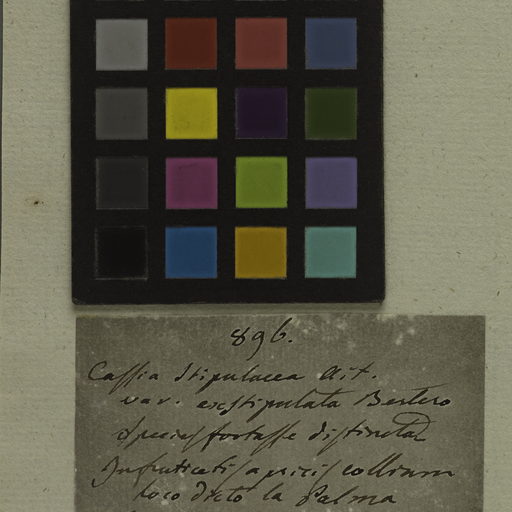 896.
Caſſia Stipulacea Ait.
var. exſtipulata Bertero
Specieſ fortaſſe diſtincta
In fruticetiſ apriciſ collium
loco dicto la Palma